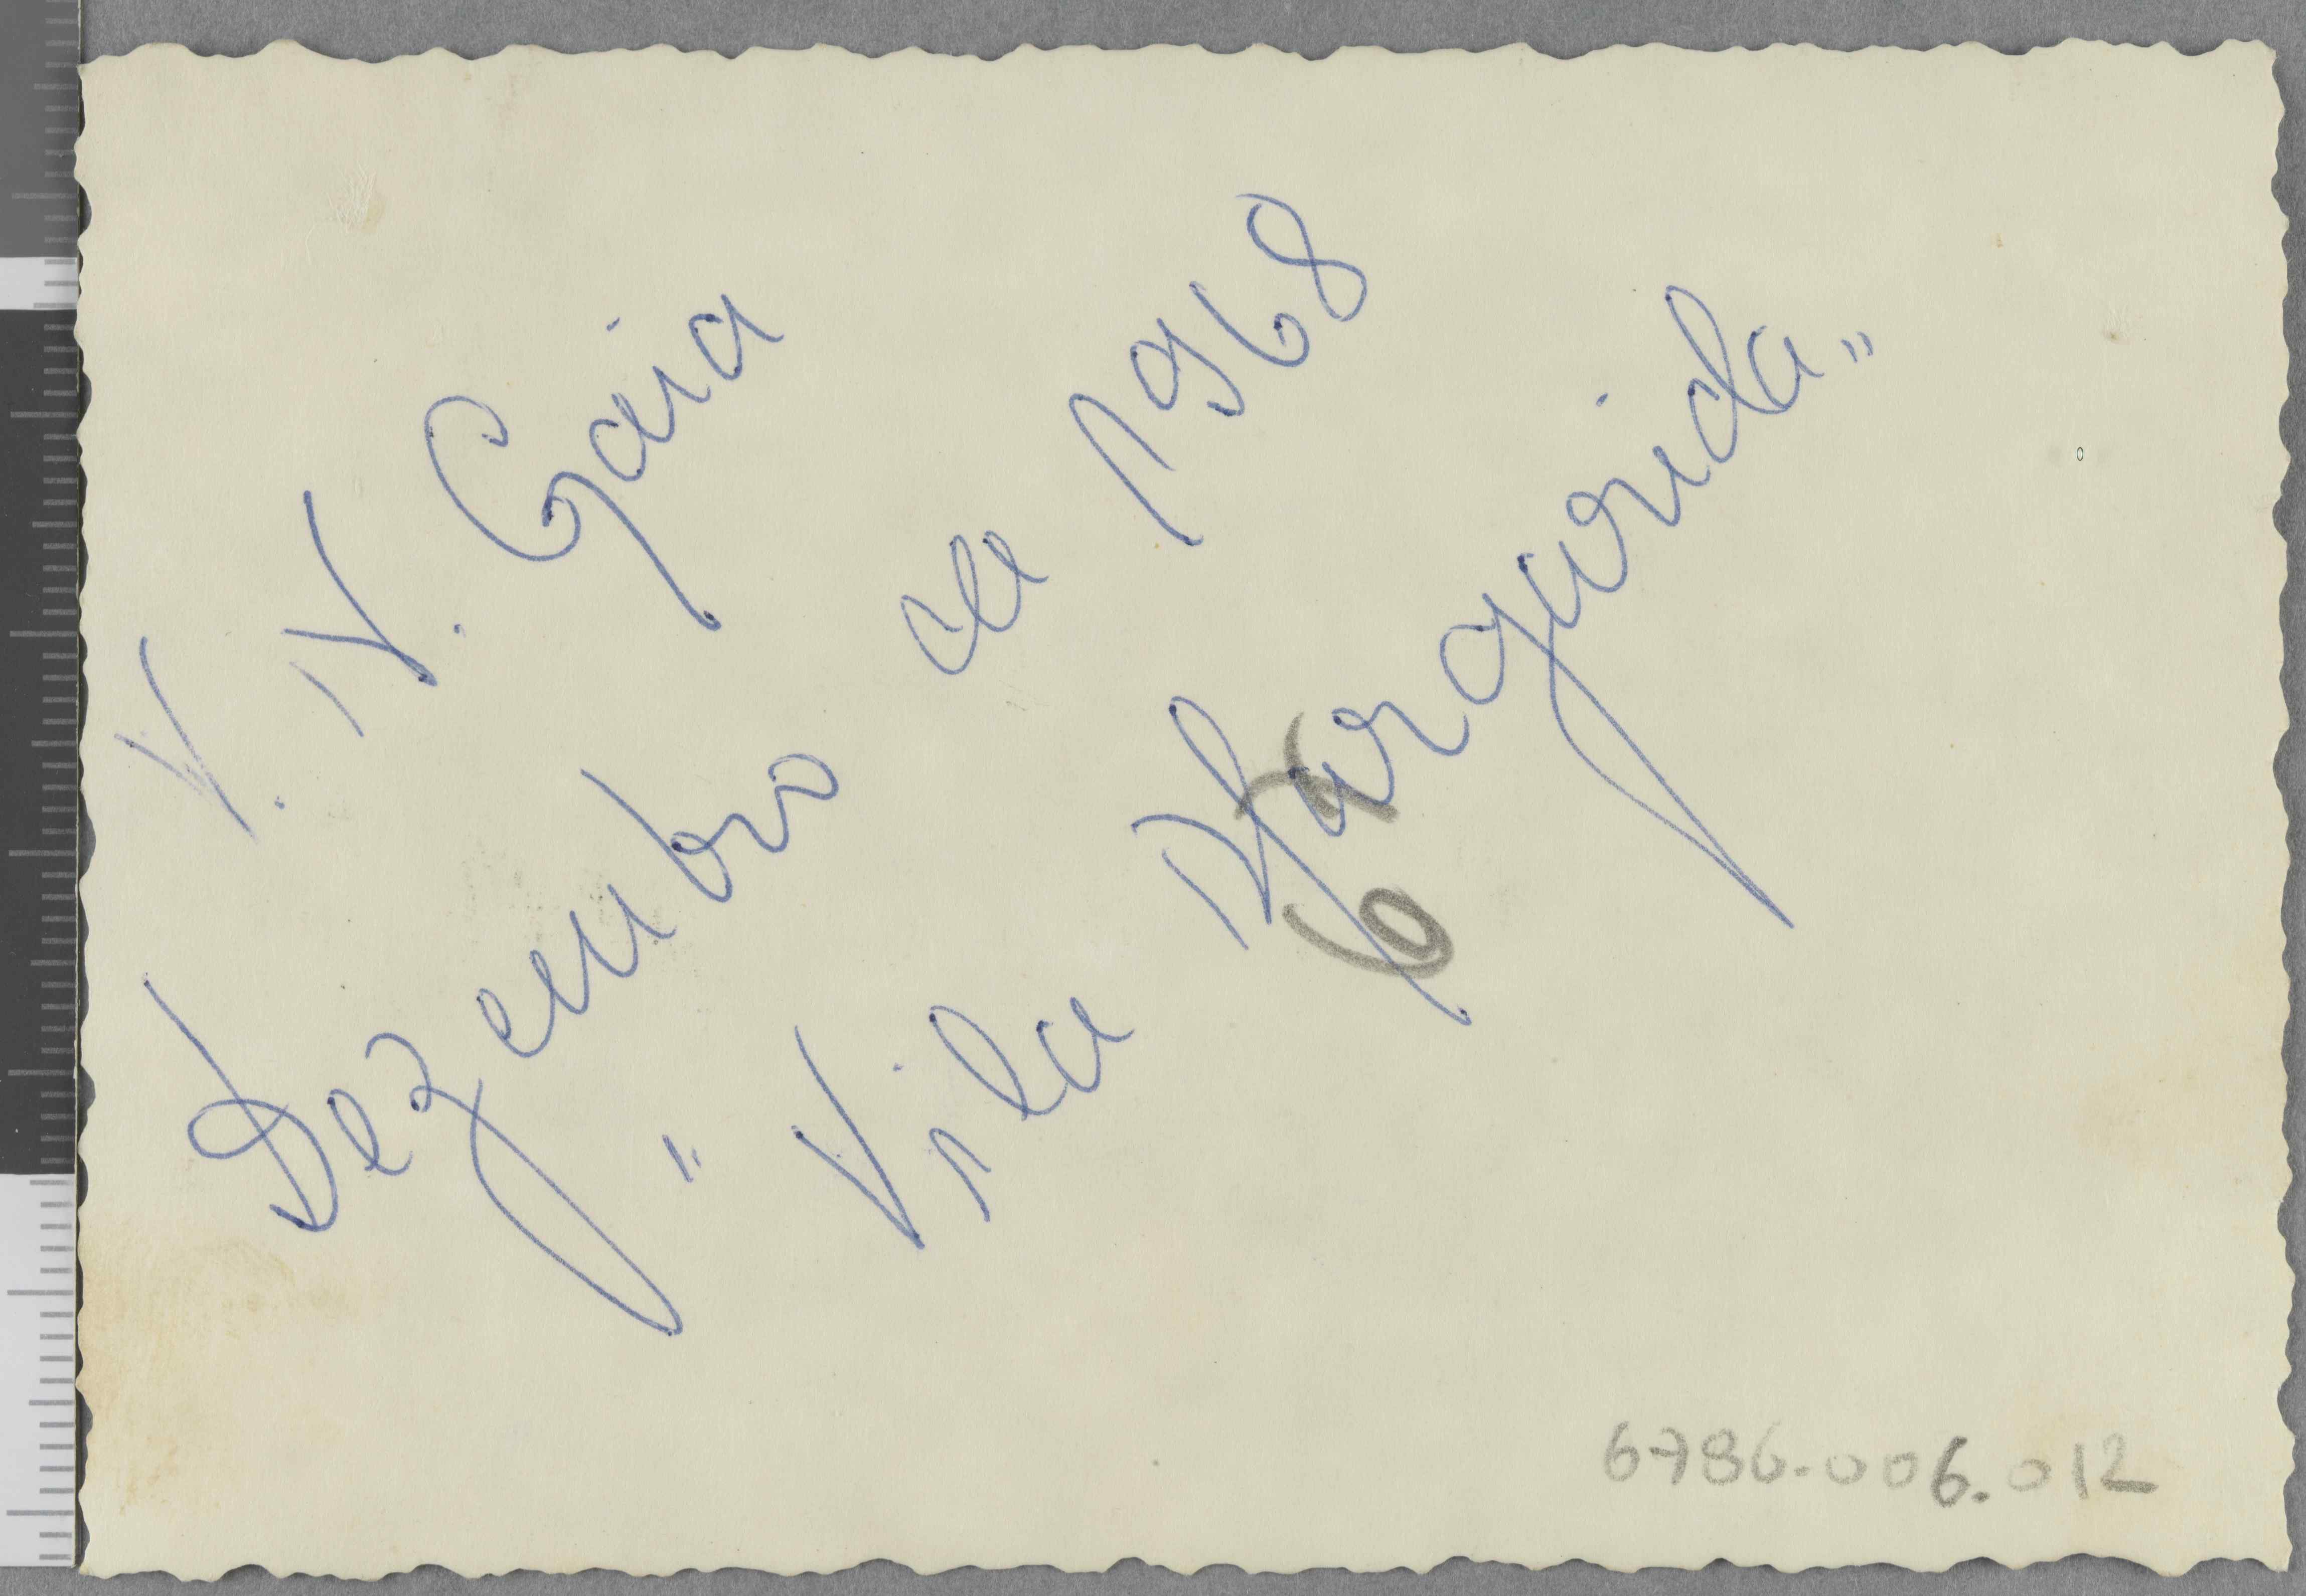 V. N. Gaia
Dezembro de 1968
"Vila Margarida"
6786.006.012